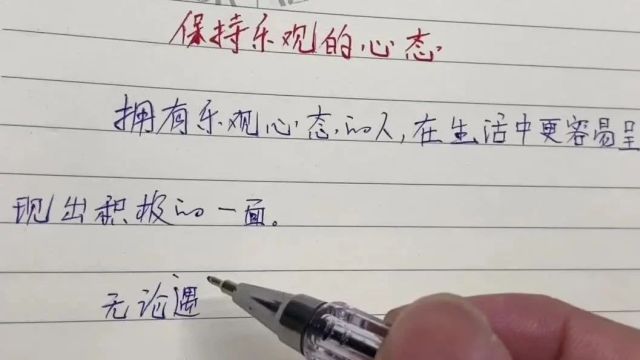 保持乐观的心态
拥有乐观心态的人,在生活中更容易呈
现出积极的一面。
无论遇